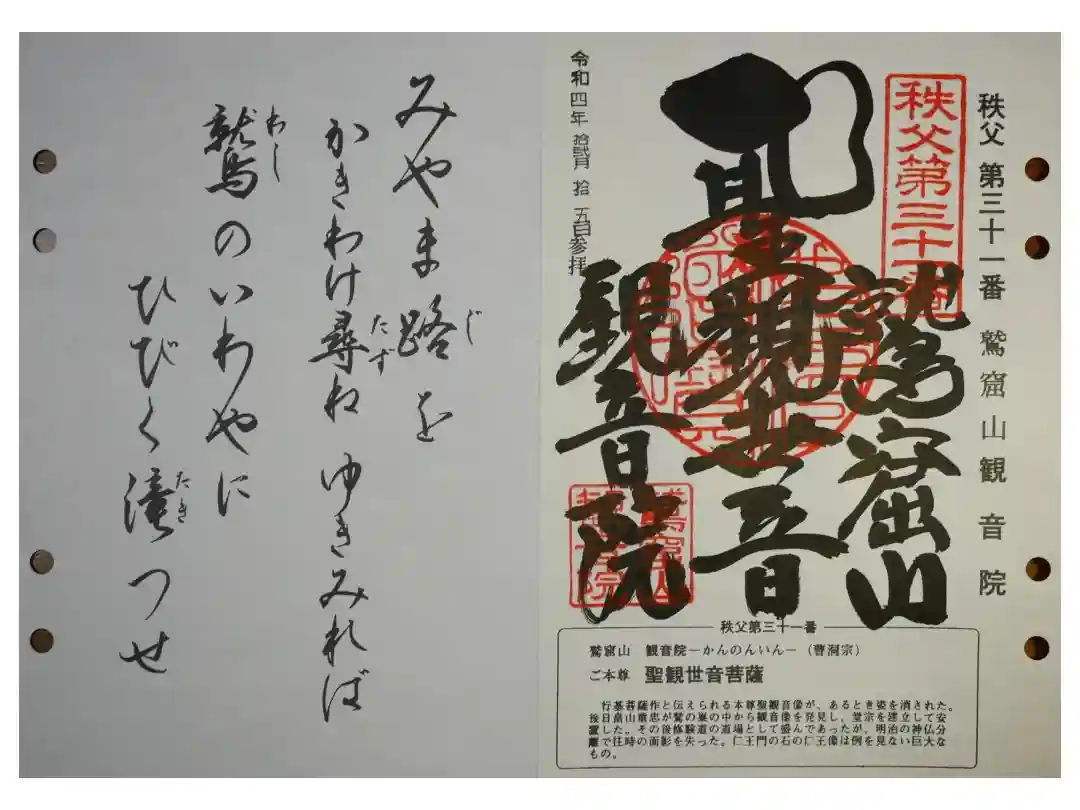 秩父 第三十一番 鷲窟山観音院
秩父第三十一番
鷲窟山
聖観世音
観音院
令和四年 拾弐月 拾五日参拝
秩父第三十一番
鷲窟山 観音院−かんのんいん−（曹洞宗）
ご本尊 聖観世音菩薩
行基菩薩作と伝えられる本尊聖観音像が、あるとき姿を消された。
後日畠山重忠が鷲の巣の中から観音像を発見し、堂宗を建立して安
置した。その後修験道の道場として盛んであったが、明治の神仏分
離で往時の面影を失った。仁王門の石の仁王像は例を見ない巨大な
もの。
みやま路を
じ
かきわけ尋ね ゆきみれば
たず
鷲のいわやに
わし
ひびく滝つせ
たき